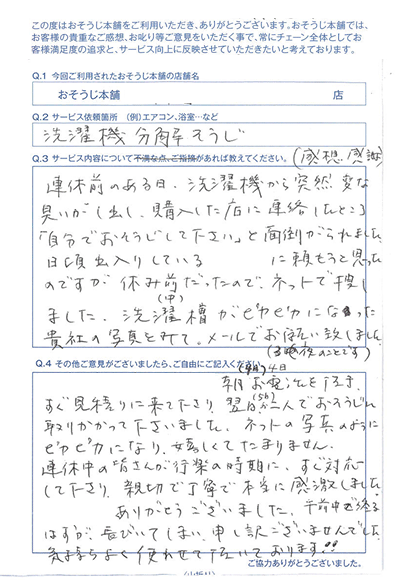 この度はおそうじ本舗をご利用いただき、ありがとうございます。おそうじ本舗では、
お客様の貴重なご感想、お叱り等ご意見をいただく事で、常にチェーン全体としてお
客様満足度の追求と、サービス向上に反映させていただきたいと考えております。
Q.1 今回ご利用されたおそうじ本舗の店舗名
おそうじ本舗 店
Q.2 サービス依頼箇所 (例)エアコン、浴室…など
洗濯機分解そうじ
Q.3 サービス内容について不満な点、ご指摘があれば教えてください。(感想、感謝)
連休前のある日、洗濯機から突然変な
臭いがし出し、購入した店に連絡したところ
「自分でおそうじして下さい」と面倒がられました。
日頃出入りしている に頼もうと思った
のですが休み前(中)だったので、ネットで捜し
ました。洗濯槽がピカピカになった
貴社の写真をみて、メールでお伝い致しました。
(3晩夜のことです)
Q.4 その他ご意見がございましたら、ご自由にご記入ください。
4日
朝お電話を頂き、
すぐ見積りに来て下さり、翌日(5日)二人でおそうじに
取りかかって下さいました。ネットの写真のように
ピカピカになり、嬉しくてたまりません。
連休中の皆さんが行楽の時期に、すぐ対応
して下さり、親切で丁寧で本当に感激しました。
ありがとうございました。午前中で終る
はずが、長びいてしまい、申し訳ございませんでした。
気持ちよく使わせて頂いております!!
ご協力ありがとうございました。